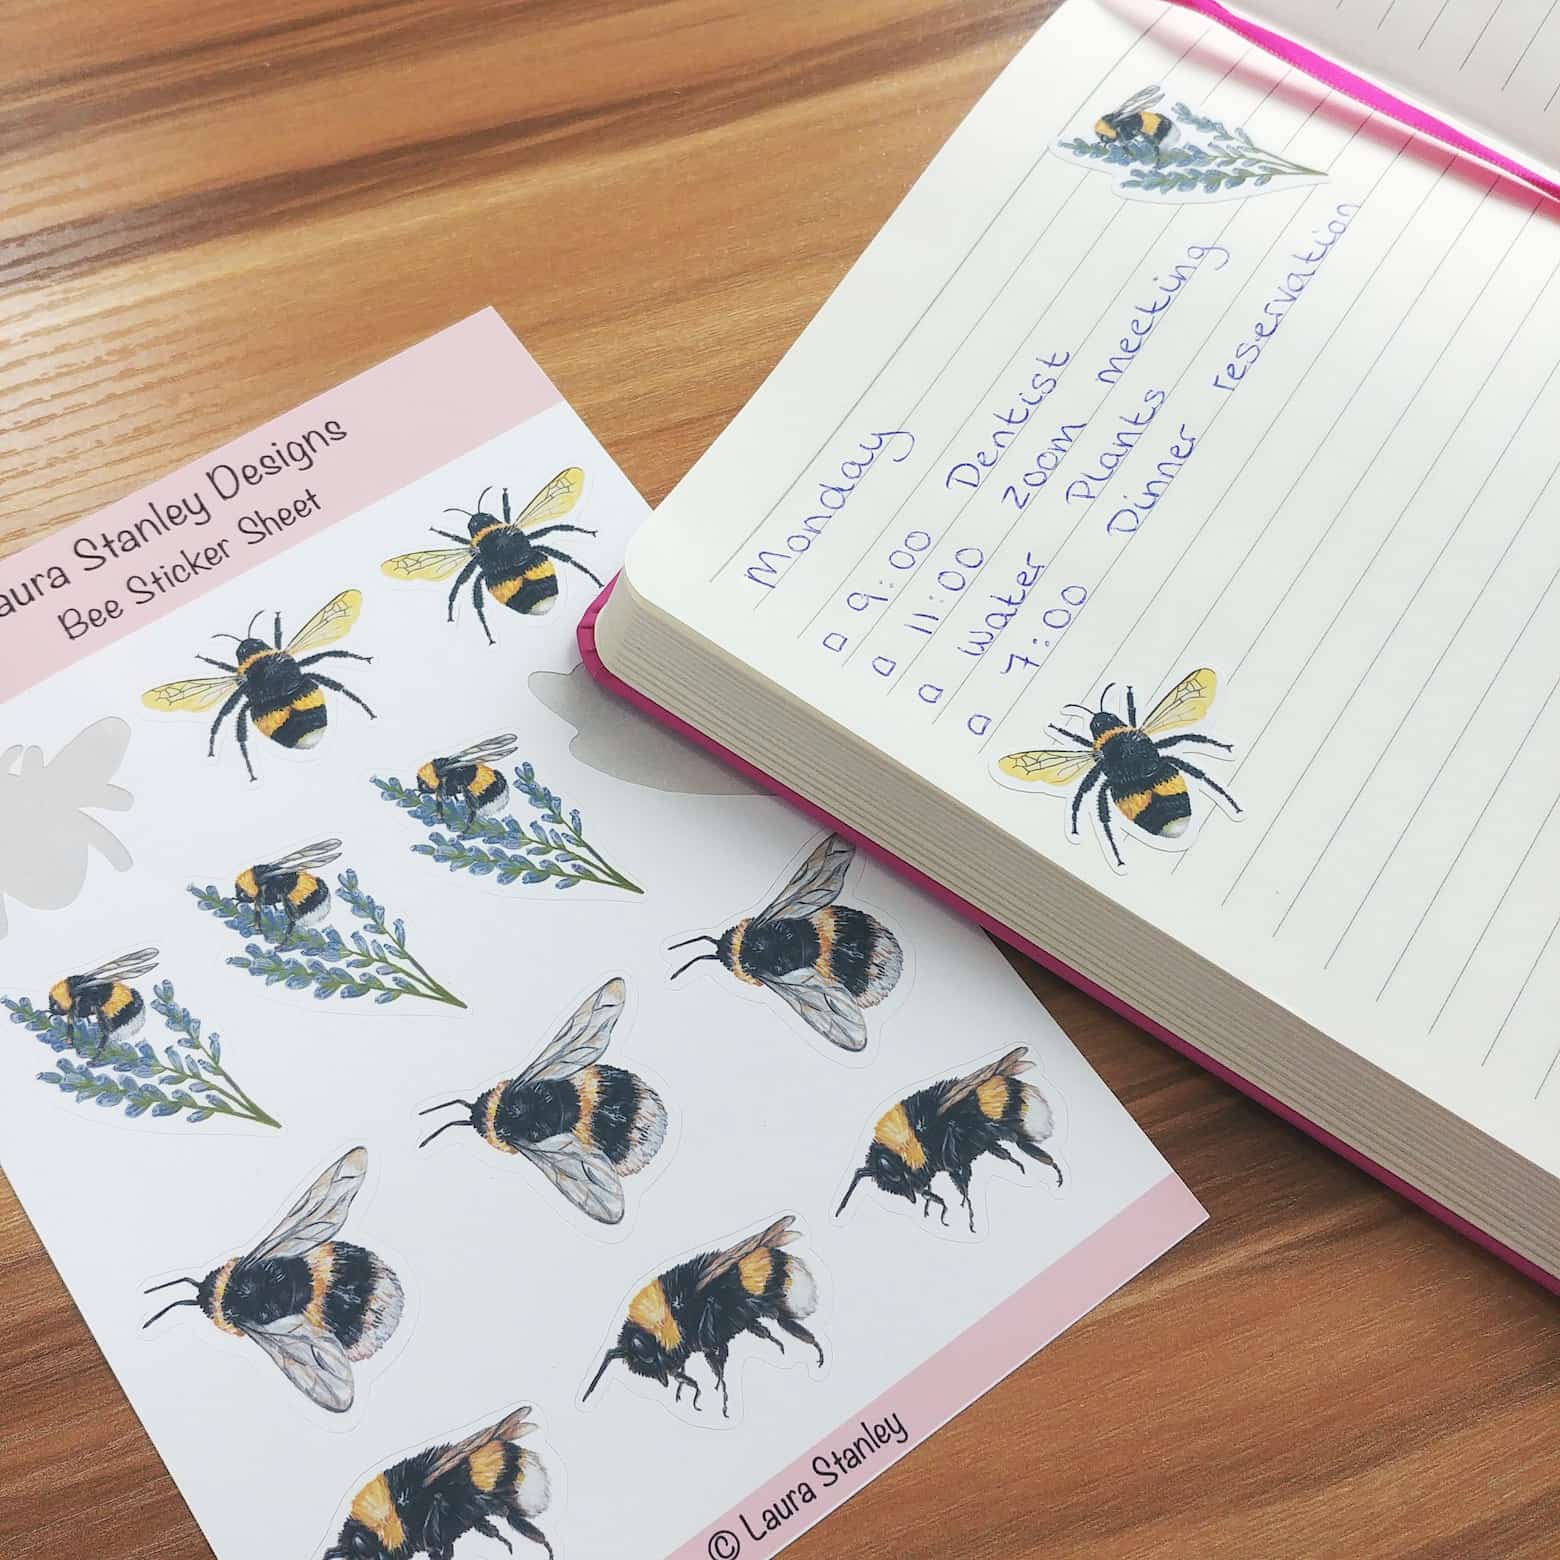 aura Stanley Designs
Bee Sticker Sheet
© Laura Stanley
Monday
9:00 Dentist
11:00 zoom meeting
water Plants
7:00 Dinner reservation